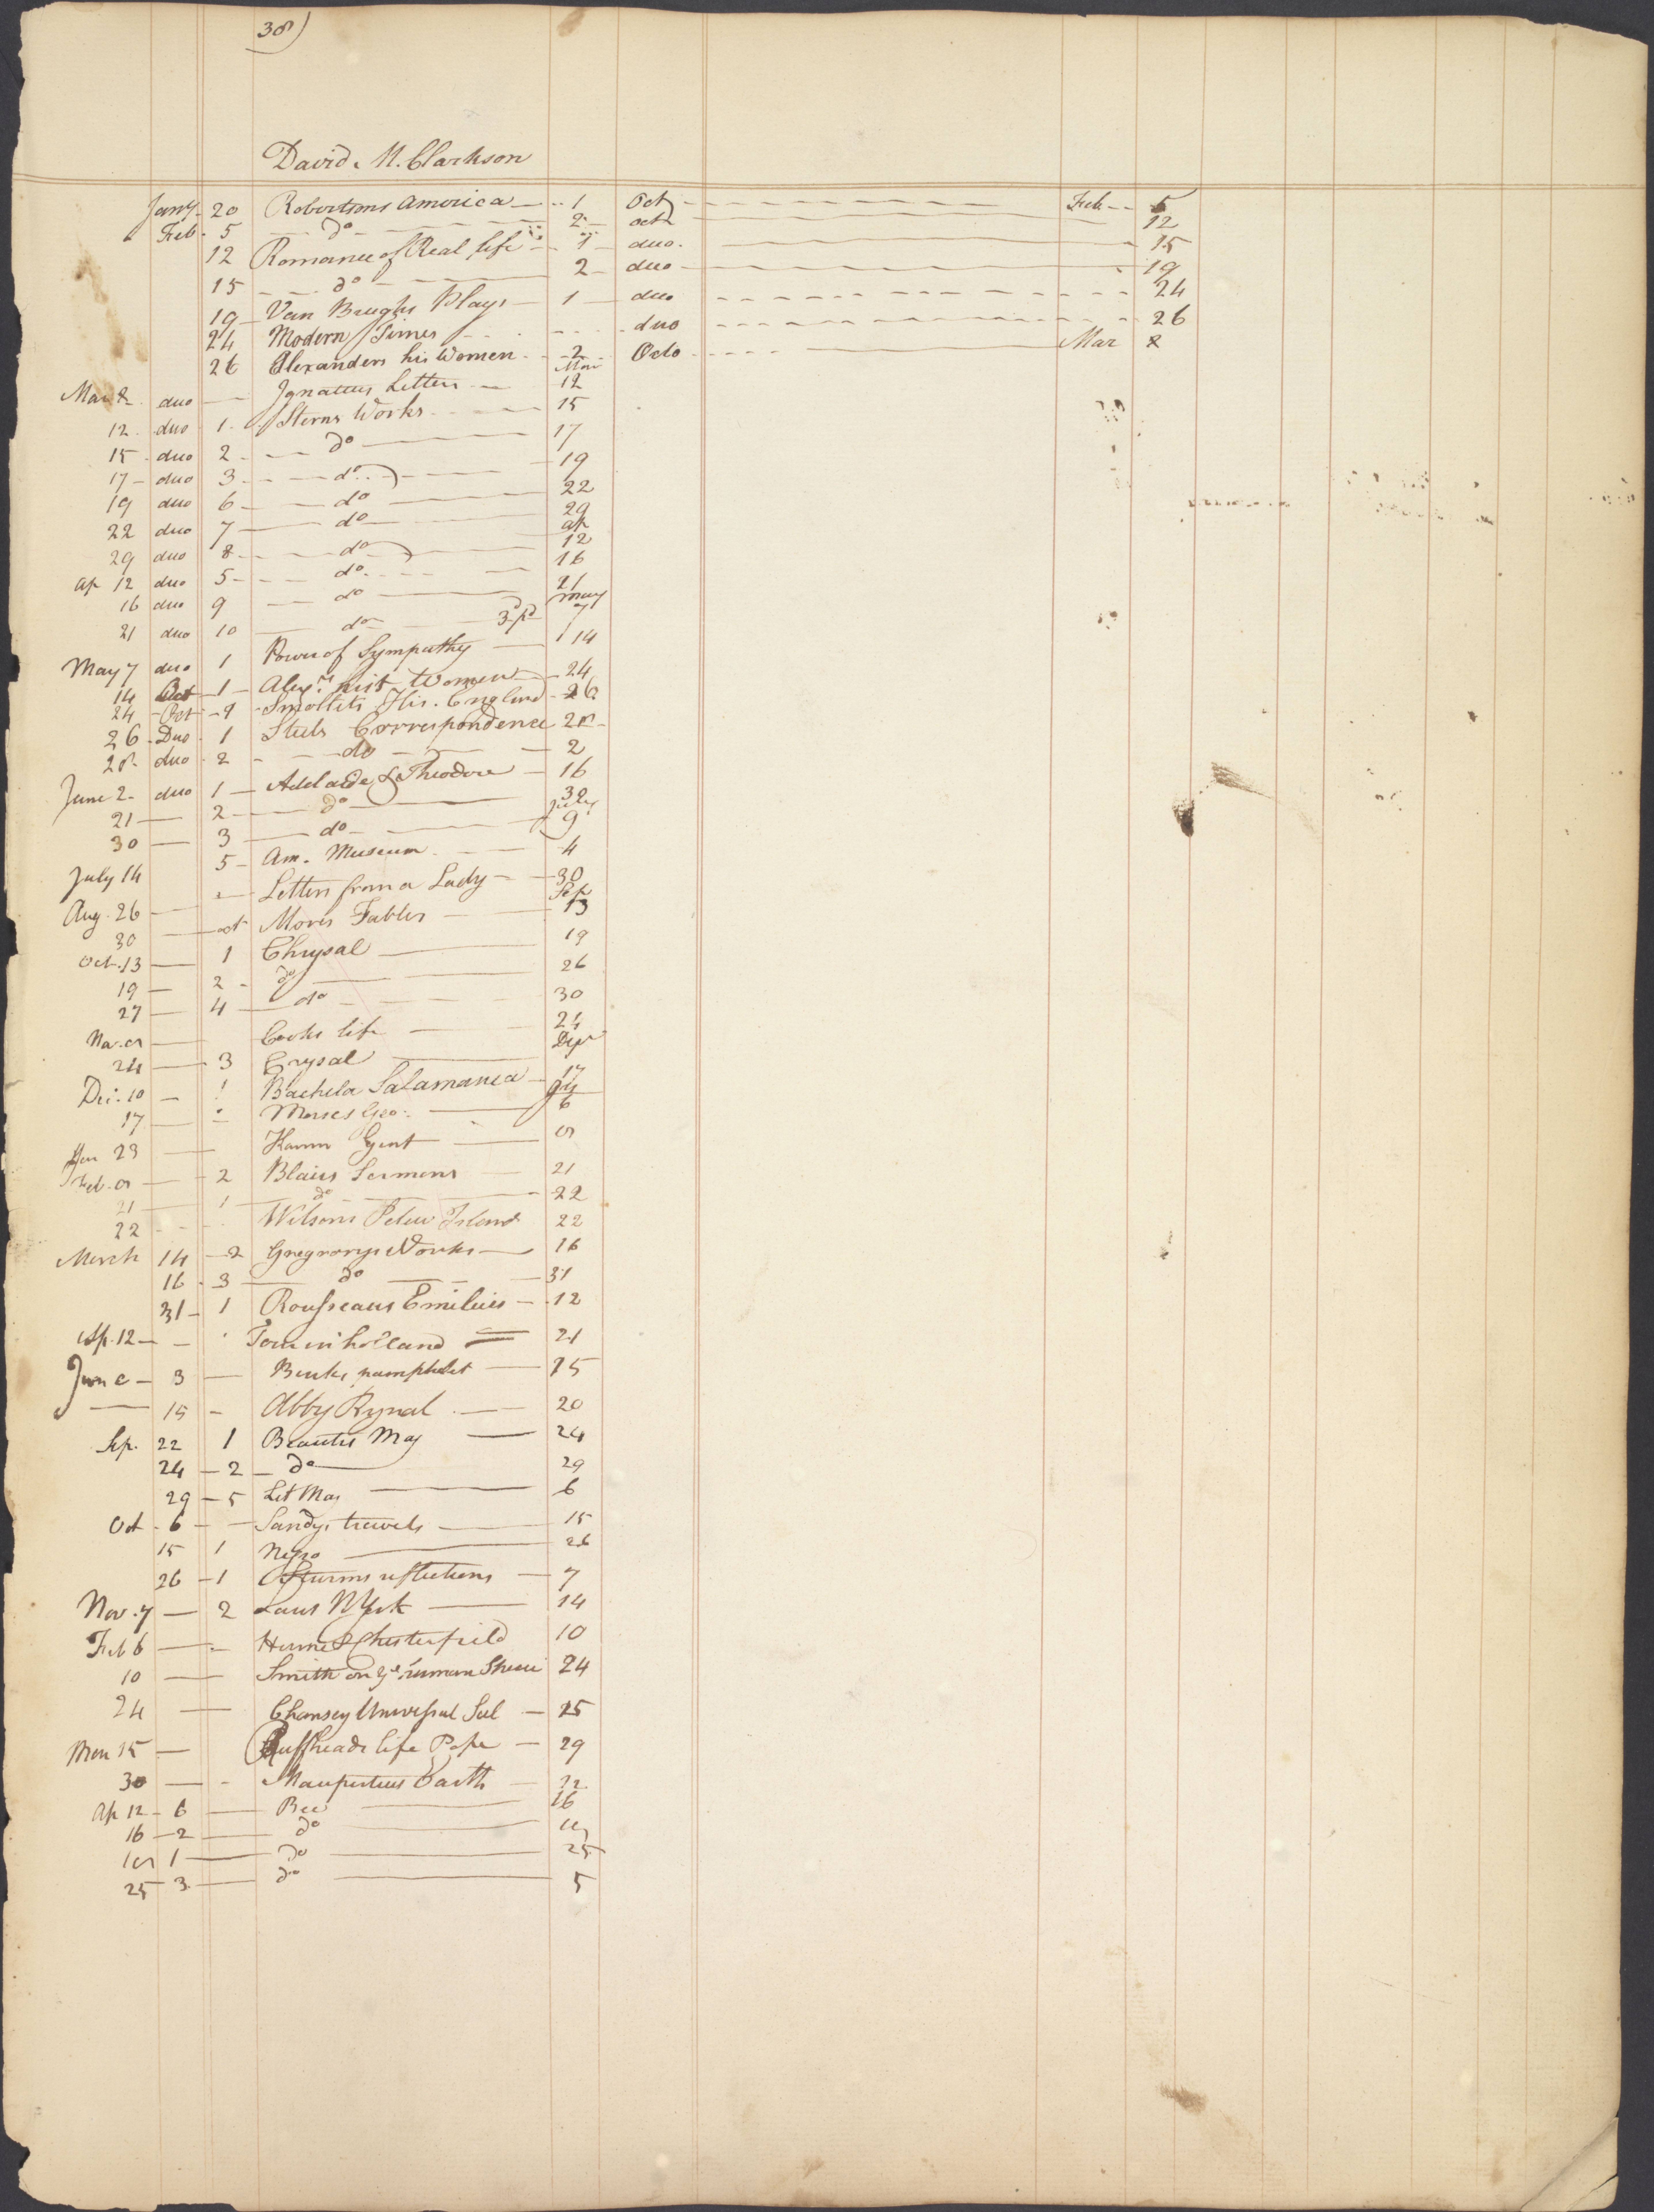 38)
David M. Clarkson
Jany 20 Robertsons America 1 Oct Feb 5
Feb 5 do 2 oct 12
12 Romance of Real life 1 duo 15
15 do 2 duo 19
19 Van Brughs Plays 1 duo 24
24 Modern Times duo 26
26 Alexanders his Women 2 Octo Mar 8
Mar 8 duo Ignatius Letters Mar 12
12 duo 1 Sterns Works 15
15 duo 2 do 17
17 duo 3 do 19
19 duo 6 do 22
22 duo 7 do 29
29 duo 8 do ap 12
ap 12 duo 5 do 16
16 duo 9 do 21
21 duo 10 do may 7
May 7 duo 1 Power of Sympathy 14
14 Oct 1 Alexrs hist Women 24
24 Oct 9 Smolletts His. England 26
26 Duo 1 Steels Correspondence 28
28 duo 2 do 2
June 2 duo 1 Adelaide & Theodore 16
21 2 do 30
30 3 do July 9
July 14 5 Am. Museum 4
Aug. 26 Letters from a Lady 30
30 oct Mores Fables Sep 13
Oct. 13 1 Chrysal 19
19 2 do 26
27 4 do 30
Nov. 8 Cooks life 24
24 3 Crysal Decr
Dec. 10 1 Bachelor Salamanca 17
17 Morses Geo. 6
Jan 23 Gent 8
Feb. 8 2 Blairs Sermons 21
21 1 do 22
22 Wilsons Pelew Island 22
March 14 2 Gregrorys Works 16
16 3 do 31
31 1 Rousseaus Emilius 12
Ap. 12 Tour in holland 21
June 3 Burke pamphlet 15
15 Abby Rynal 20
Sep. 22 1 Beauties Mag 24
24 2 do 29
29 5 Lit Mag 6
Oct 6 Sandys travels 15
15 1 Negro 26
26 1 Sturms reflections 7
Nov. 7 2 Laws N York 14
Feb 6 Hume & Chesterfield 10
10 Smith on ye human 24
24 Chansey Universal Sal 25
15 Ruffheads life Pope 29
30 Maupertius Earth 12
Ap 12 6 Bee 16
16 2 do 18
18 1 do 25
25 3 do 5